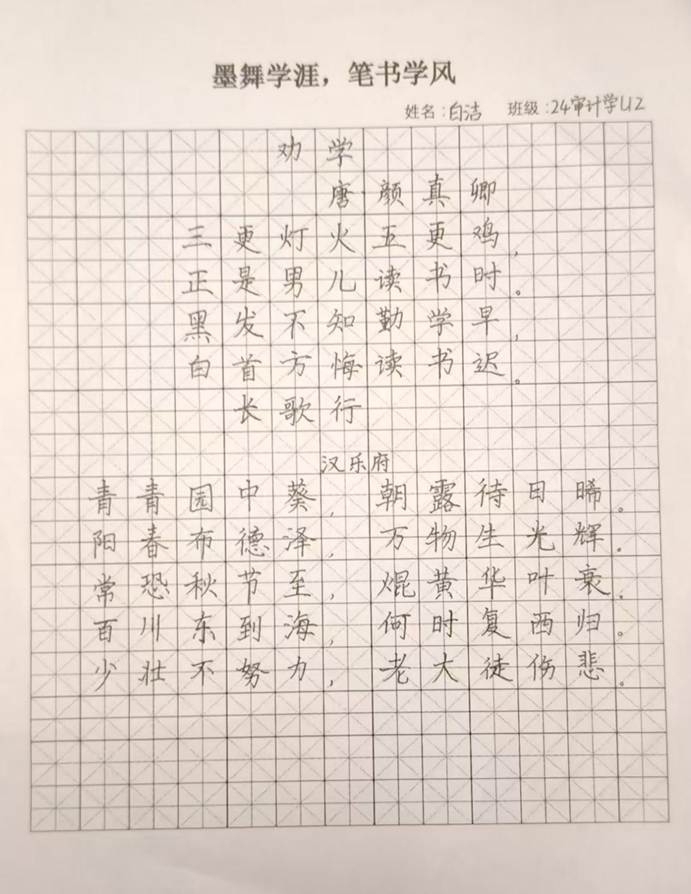 墨舞学涯，笔书学风
姓名：白洁 班级：24审计学U2
劝学
唐·颜真卿
三更灯火五更鸡，
正是男儿读书时。
黑发不知勤学早，
白首方悔读书迟。
长歌行
汉乐府
青青园中葵，朝露待日晞。
阳春布德泽，万物生光辉。
常恐秋节至，焜黄华叶衰。
百川东到海，何时复西归。
少壮不努力，老大徒伤悲。